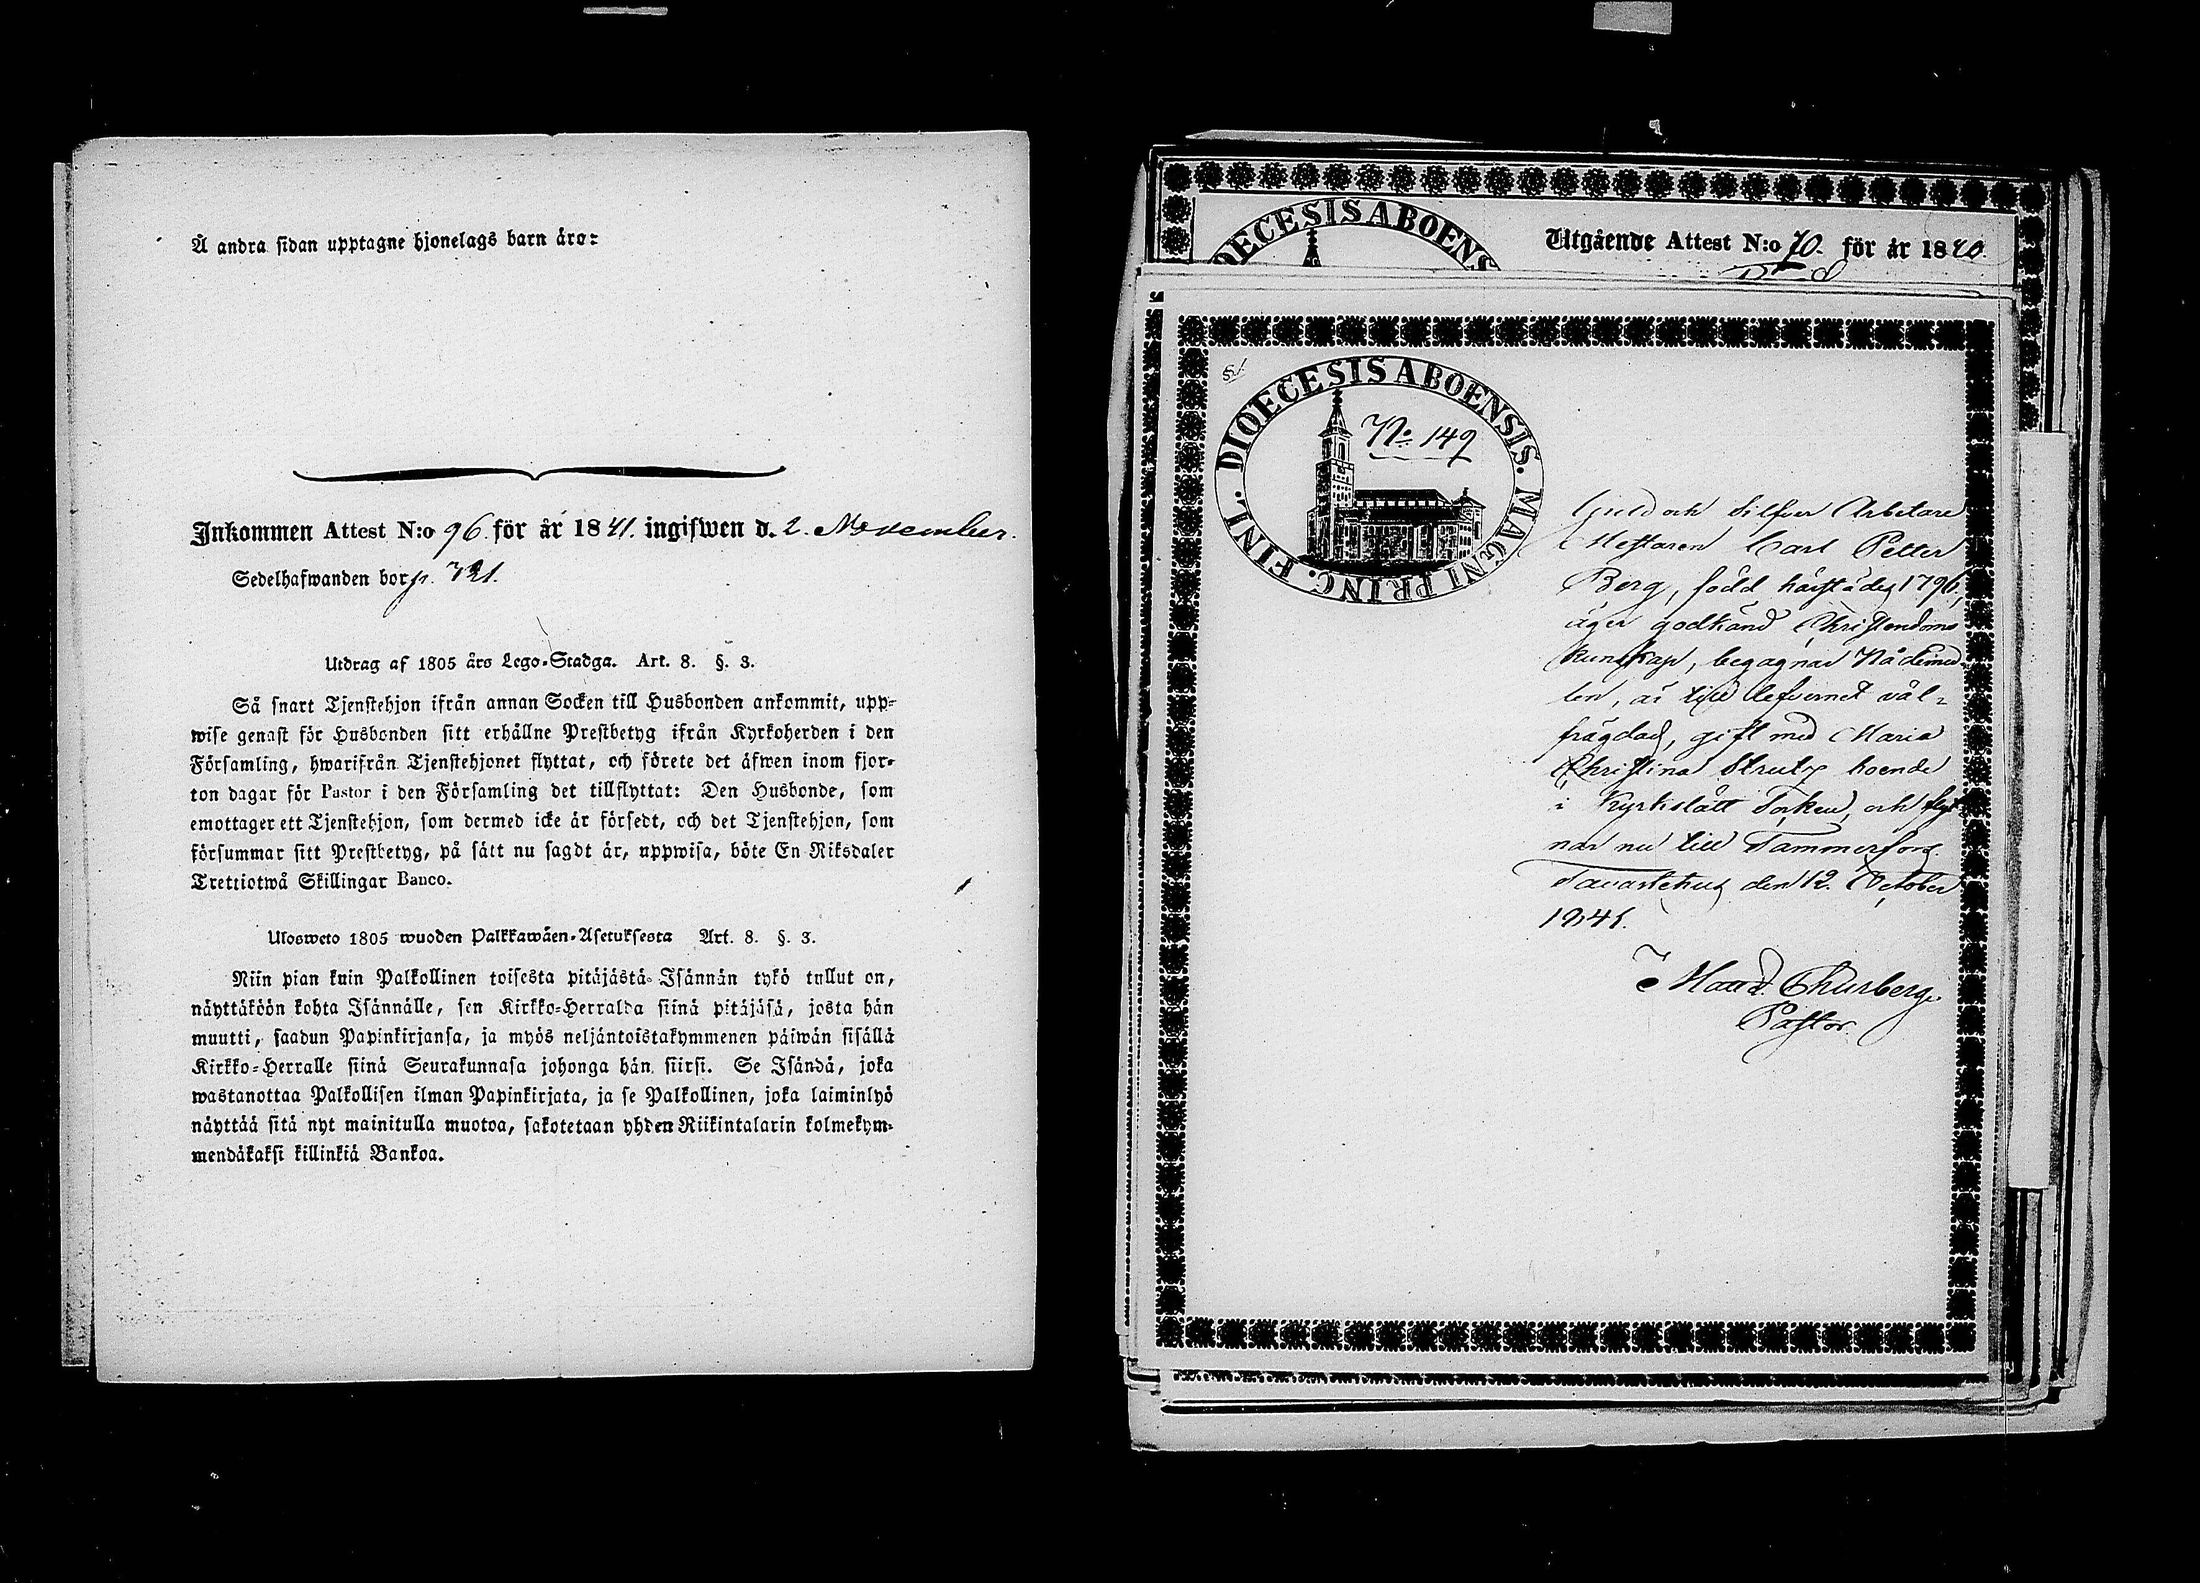 Å andra sidan upptagne hjonelags barn äro:
Inkommen Attest N:o 96. för år 1841. ingifwen d. 2. November.
Sedelhafwanden bor p. 721.
Utdrag af 1805 års Lego-Stadga. Art. 8. §. 3.
Så snart Tjenstehjon ifrån annan Socken till Husbonden ankommit, upp-
wise genast för Husbonden sitt erhållne Prestbetyg ifrån Kyrkoherden i den
Församling, hwarifrån Tjenstehjonet flyttat, och förete det äfwen inom fjor-
ton dagar för Pastor i den Församling det tillflyttat: Den Husbonde, som
emottager ett Tjenstehjon, som dermed icke är försedt, och det Tjenstehjon, som
försummar sitt Prestbetyg, på sätt nu sagdt är, uppwisa, böte En Riksdaler
Trettiotwå Skillingar Banco.
Ulosweto 1805 wuoden Palkkawäen-Asetuksesta Art. 8. §. 3.
Niin pian kuin Palkollinen toisesta pitäjästä Isännän tykö tullut on,
näyttäköön kohta Isännälle, sen Kirkko-Herralda siinä pitäjäsä, josta hän
muutti, saadun Papinkirjansa, ja myös neljäntoistakymmenen päiwän sisällä
Kirkko-Herralle siinä Seurakunnasa johonga hän siirsi. Se Isändä, joka
wastanottaa Palkollisen ilman Papinkirjata, ja se Palkollinen, joka laiminlyö
näyttää sitä nyt mainitulla muotoa, sakotetaan yhden Riikintalarin kolmekym-
mendäkaksi killinkiä Bankoa.
DIOECESIS ABOENS
Utgående Attest N:o 70. för år 1840.
51.
DIOECESIS ABOENSIS. MAGNI PRINC. FINL.
No 149
Guld och Silfver Arbetare
Mestaren Carl Petter
Berg, född härstädes 1796,
äger godkänd Christendoms
kunskap, begagnar Nådemed-
len, är till lefvernet väl-
frägdad, gift med Maria
Christina Strutz boende
i Kyrkslätt Socken, och flyt-
nar nu till Tammerfors.
Tavastehus den 12. October
1841.
Maur. Thurberg.
Pastor.